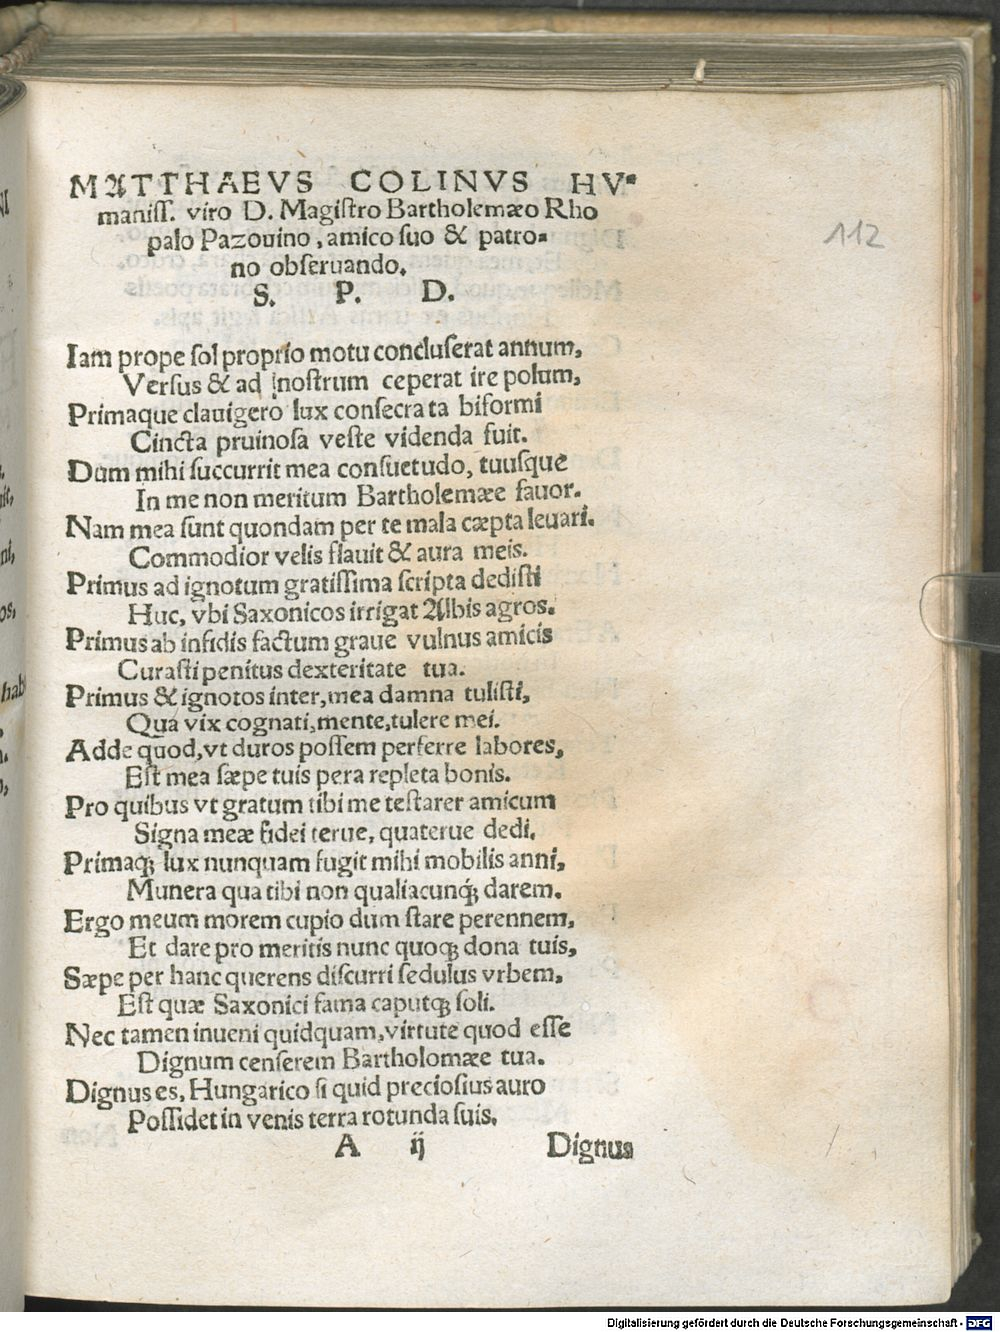 MATTHAEVS COLINVS HV-
maniſſ. viro D. Magiſtro Bartholemæo Rho
palo Pazouino, amico ſuo & patro-
no obſeruando.
S. P. D.
112
Iam prope ſol proprio motu concluſerat annum,
Verſus & ad noſtrum ceperat ire polum,
Primaque clauigero lux conſecrata biformi
Cincta pruinoſa veſte videnda fuit.
Dum mihi ſuccurrit mea conſuetudo, tuuſque
In me non meritum Bartholemæe fauor.
Nam mea ſunt quondam per te mala cæpta leuari.
Commodior velis flauit & aura meis.
Primus ad ignotum gratiſſima ſcripta dediſti
Huc, vbi Saxonicos irrigat Albis agros.
Primus ab infidis factum graue vulnus amicis
Curaſti penitus dexteritate tua.
Primus & ignotos inter, mea damna tuliſti,
Qua vix cognati, mente, tulere mei.
Adde quod, vt duros poſſem perferre labores,
Eſt mea ſæpe tuis pera repleta bonis.
Pro quibus vt gratum tibi me teſtarer amicum
Signa meæ fidei terue, quaterue dedi.
Primaq; lux nunquam fugit mihi mobilis anni,
Munera qua tibi non qualiacunq; darem.
Ergo meum morem cupio dum ſtare perennem,
Et dare pro meritis nunc quoq; dona tuis,
Sæpe per hanc querens diſcurri ſedulus vrbem,
Eſt quæ Saxonici fama caputq; ſoli.
Nec tamen inueni quidquam, virtute quod eſſe
Dignum cenſerem Bartholomæe tua.
Dignus es, Hungarico ſi quid precioſius auro
Poſſidet in venis terra rotunda ſuis.
A ij Dignus
Digitalisierung gefördert durch die Deutsche Forschungsgemeinschaft - DFG